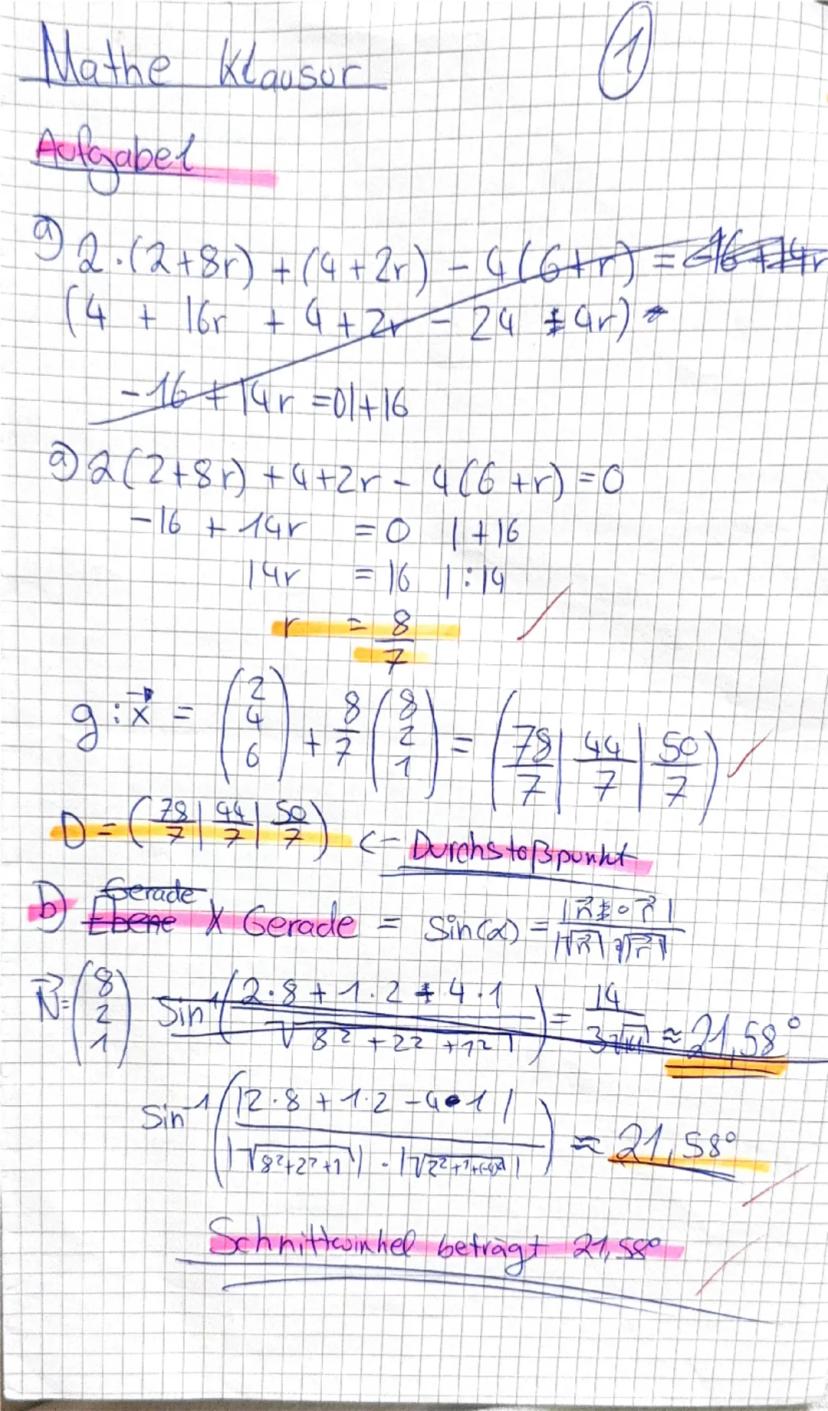 Mathe Klausur ①
Aufgabe 1
a) 2·(2+8r) + (4+2r) - 4(6+r) = -16+14r
(4 + 16r + 4+2r - 24 ± 4r)
-16 + 14r = 0 |+16
a) 2(2+8r) + 4+2r - 4(6+r) = 0
-16 + 14r = 0 | +16
14r = 16 | :14
r = 8/7
g: x⃗ = (2 4 6) + 8/7 (8 2 1) = (78/7 | 44/7 | 50/7)
D = (78/7 | 44/7 | 50/7) <- Durchstoßpunkt
b) Gerade
Ebene X Gerade = sin(α) = |n⃗ ∘ r⃗| / |√n⃗| |√r⃗|
N⃗ = (8 2 1) sin⁻¹((2·8 + 1·2 + 4·1) / √8²+2²+1²) = 14 / 3√14 ≈ 21,58°
sin⁻¹(|2·8 + 1·2 - 4·1| / |√8²+2²+1²| · |√2²+1²+(-4)²|) ≈ 21,58°
Schnittwinkel beträgt 21,58°